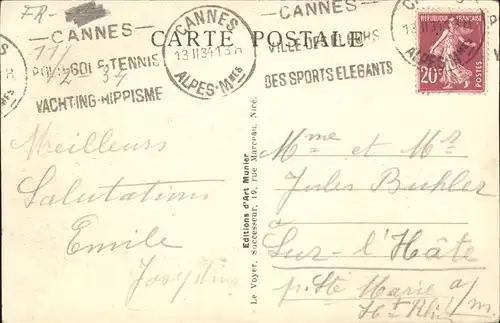 FR-
CANNES
POLO-GOLF-TENNIS
YACHTING-HIPPISME
CANNES
13 II 34
ALPES-Mmes
CARTE POSTALE
CANNES
VILLE DES FLEURS
DES SPORTS ELEGANTS
CANNES
ALPES-Mmes
REPUBLIQUE FRANÇAISE
20c
POSTES
Meilleurs
Salutations
Emile
Joséphine
Editions d'Art Munier
Le Voyer, Successeur, 19, rue Marceau, Nice.
Mme et Mr
Jules Buhler
à
Sur-l'Hâte
p. Ste Marie a/m
Ht Rhin